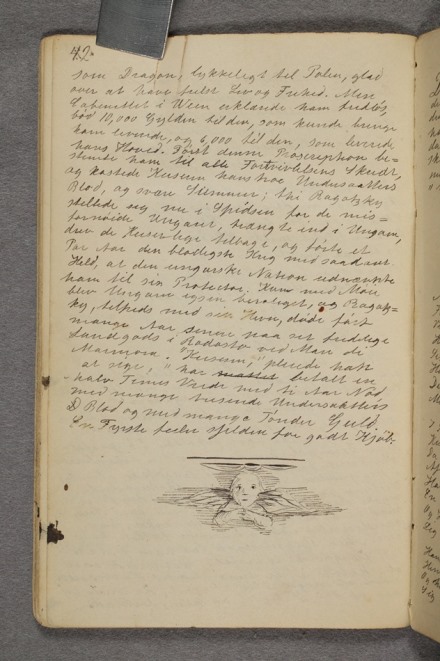 42.
som Dragon, lykkeligt til Polen, glad
over at have frelst Liv og Frihed. Men
Cabinettet i Wien erklærede ham fredløs,
bød 10,000 Gylden til den, som kunde bringe
ham levende, og 6,000 til den, som leverede
hans Hoved. Først denne Proscription be=
stemte ham til alle Fortvivlelsens Skridt,
og kostede Keiseren hans troe Undersaatters
Blod, og svære Summer; thi Ragotzky
stillede sig nu i Spidsen for de mis=
fornøide Ungarer, trængte ind i Ungarn,
drev de Keiserlige tilbage, og førte et
Par Aar den blodigste Krig med saadant
Held, at den ungarske Nation udnævnte
ham til sin Protector. Kun med Møie
blev Ungarn igjen beroliget, og Ragotz=
ky, tilfreds med sin Hevn, døde først
mange Aar senere paa sit fredelige
Landgods i Rodosto ved Mare di
Marmora. "Keiseren," pleiede han
at sige, "har betalt en
halv Times Vrede med ti Aars Nød
med mange tusende Undersaatters
Blod og med mange Tønder Guld.
En Fyrste feiler sjelden for godt Kjøb.